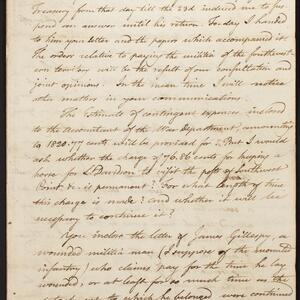 Treasury from that day till the 23d induced me to sus
pend our answer until his return. To day I handed
to him your letter and the papers which accompanied it.
The orders relative to paying the militia of the southwest
ern territory will be the result of our consultation and
joint opinions. In the mean time I will notice
other matters in your communications.
The Estimate of contingent expences, inclosed
to the Accountant of the War department, amounting
to 1820.77 cents will be provided for. But I would
ask whether the charge of 76.86 cents for keeping a
horse for D. Davidson to visit the post of Southwest
Point &c is permanent? For what length of time
this charge is made? and whether it will be
necessary to continue it?
You inclose the letter of James Gillespy, a
wounded militia man (I suppose of the mounted
infantry) who claims pay for the time he lay
wounded, or at least for so much time as the
to which he belonged were continued